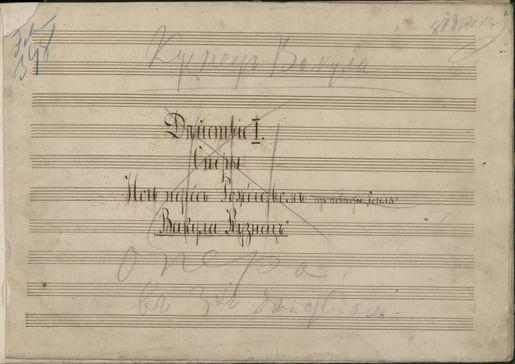 Кузнецъ Вакула
Дѣйствіе I.
Оперы
Ночь передъ Рождествомъ
Вакула Кузнецъ
опера
въ 3хъ дѣйствіяхъ